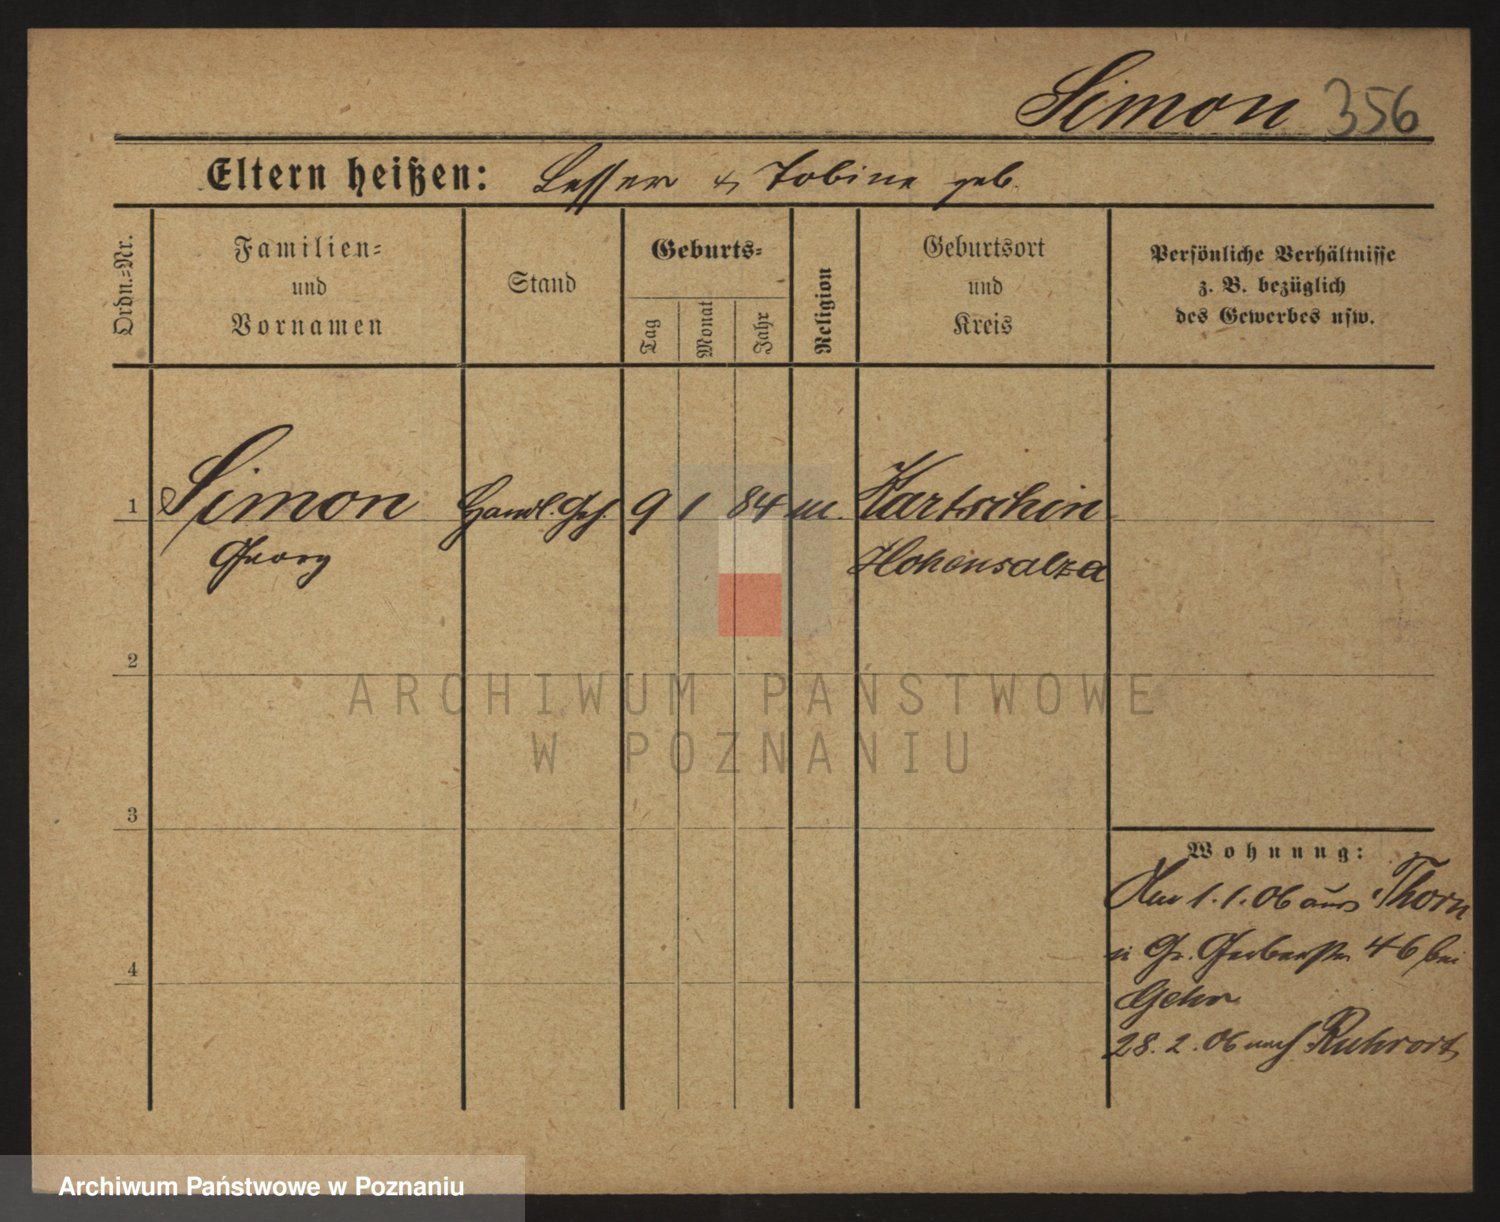 Simon 356
Eltern heißen: Lesser & Tobine geb.
Ordn.=Nr.
Familien=
und
Vornamen
Stand
Geburts=
Tag
Monat
Jahr
Religion
Geburtsort
und
Kreis
Persönliche Verhältnisse
z. B. bezüglich
des Gewerbes usw.
1 Simon Handl. Geh. 9 1 84 m. Kartschin
Georg Hohensalza
2
3
4
Wohnung:
1.1.06 aus Thorn
Gr. Gerberstr 46 bei
28.2.06 nach Ruhrort
ARCHIWUM PAŃSTWOWE
W POZNANIU
Archiwum Państwowe w Poznaniu